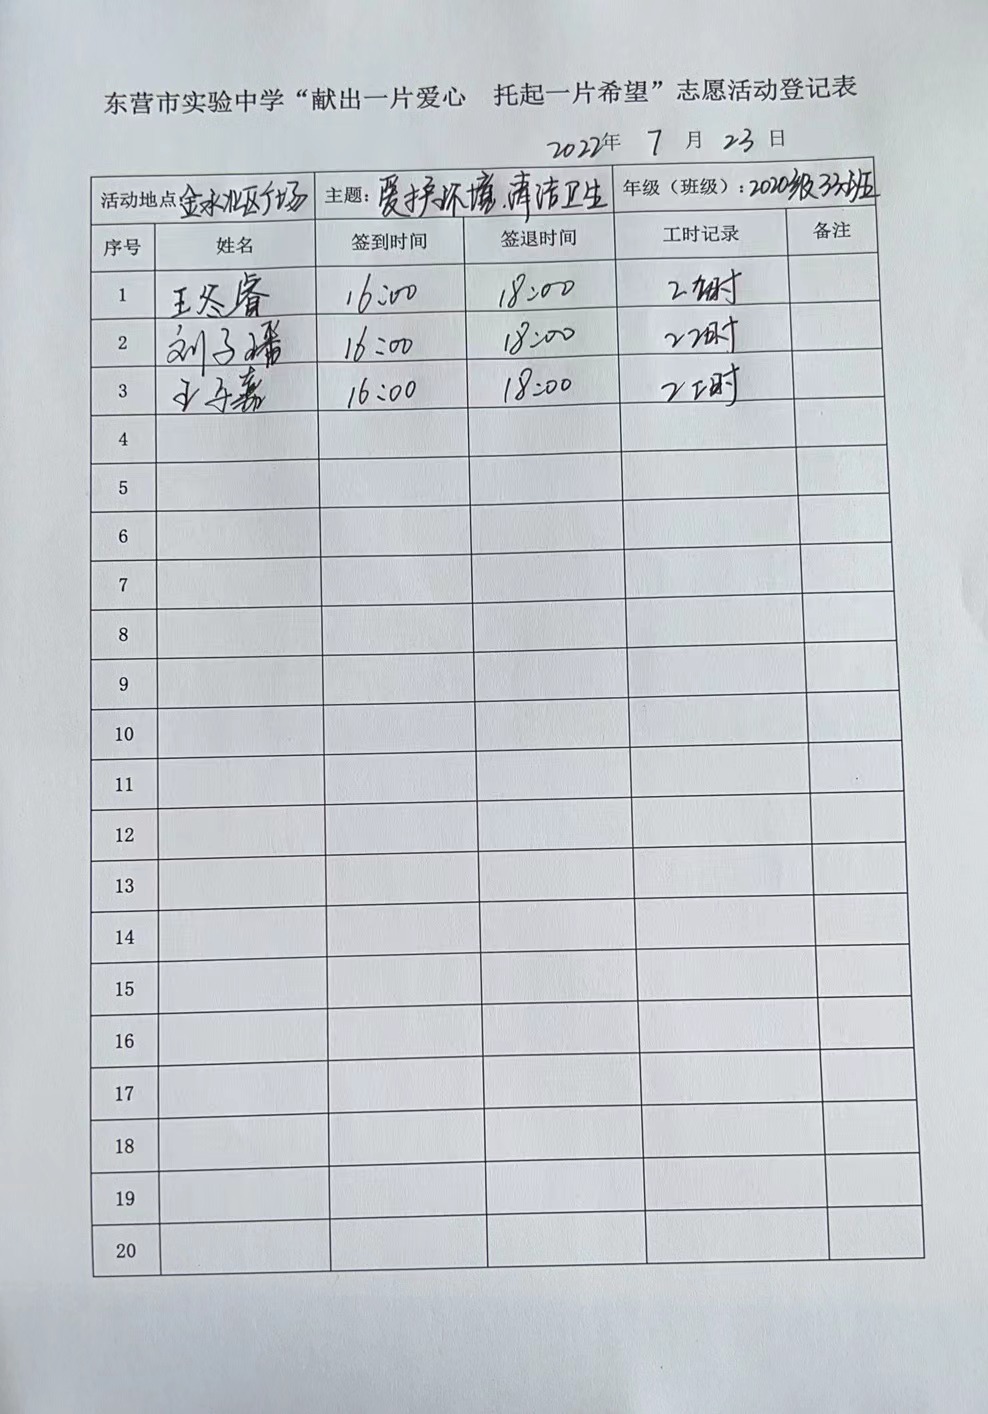 东营市实验中学“献出一片爱心 托起一片希望”志愿活动登记表
2022年 7 月 23 日
活动地点 金水北区广场 主题：爱护环境.清洁卫生 年级（班级）：2020级33班
序号 姓名 签到时间 签退时间 工时记录 备注
1 王冬睿 16:00 18:00 2 时
2 刘子璠 16:00 18:00 2 时
3 王子嘉 16:00 18:00 2工时
4
5
6
7
8
9
10
11
12
13
14
15
16
17
18
19
20